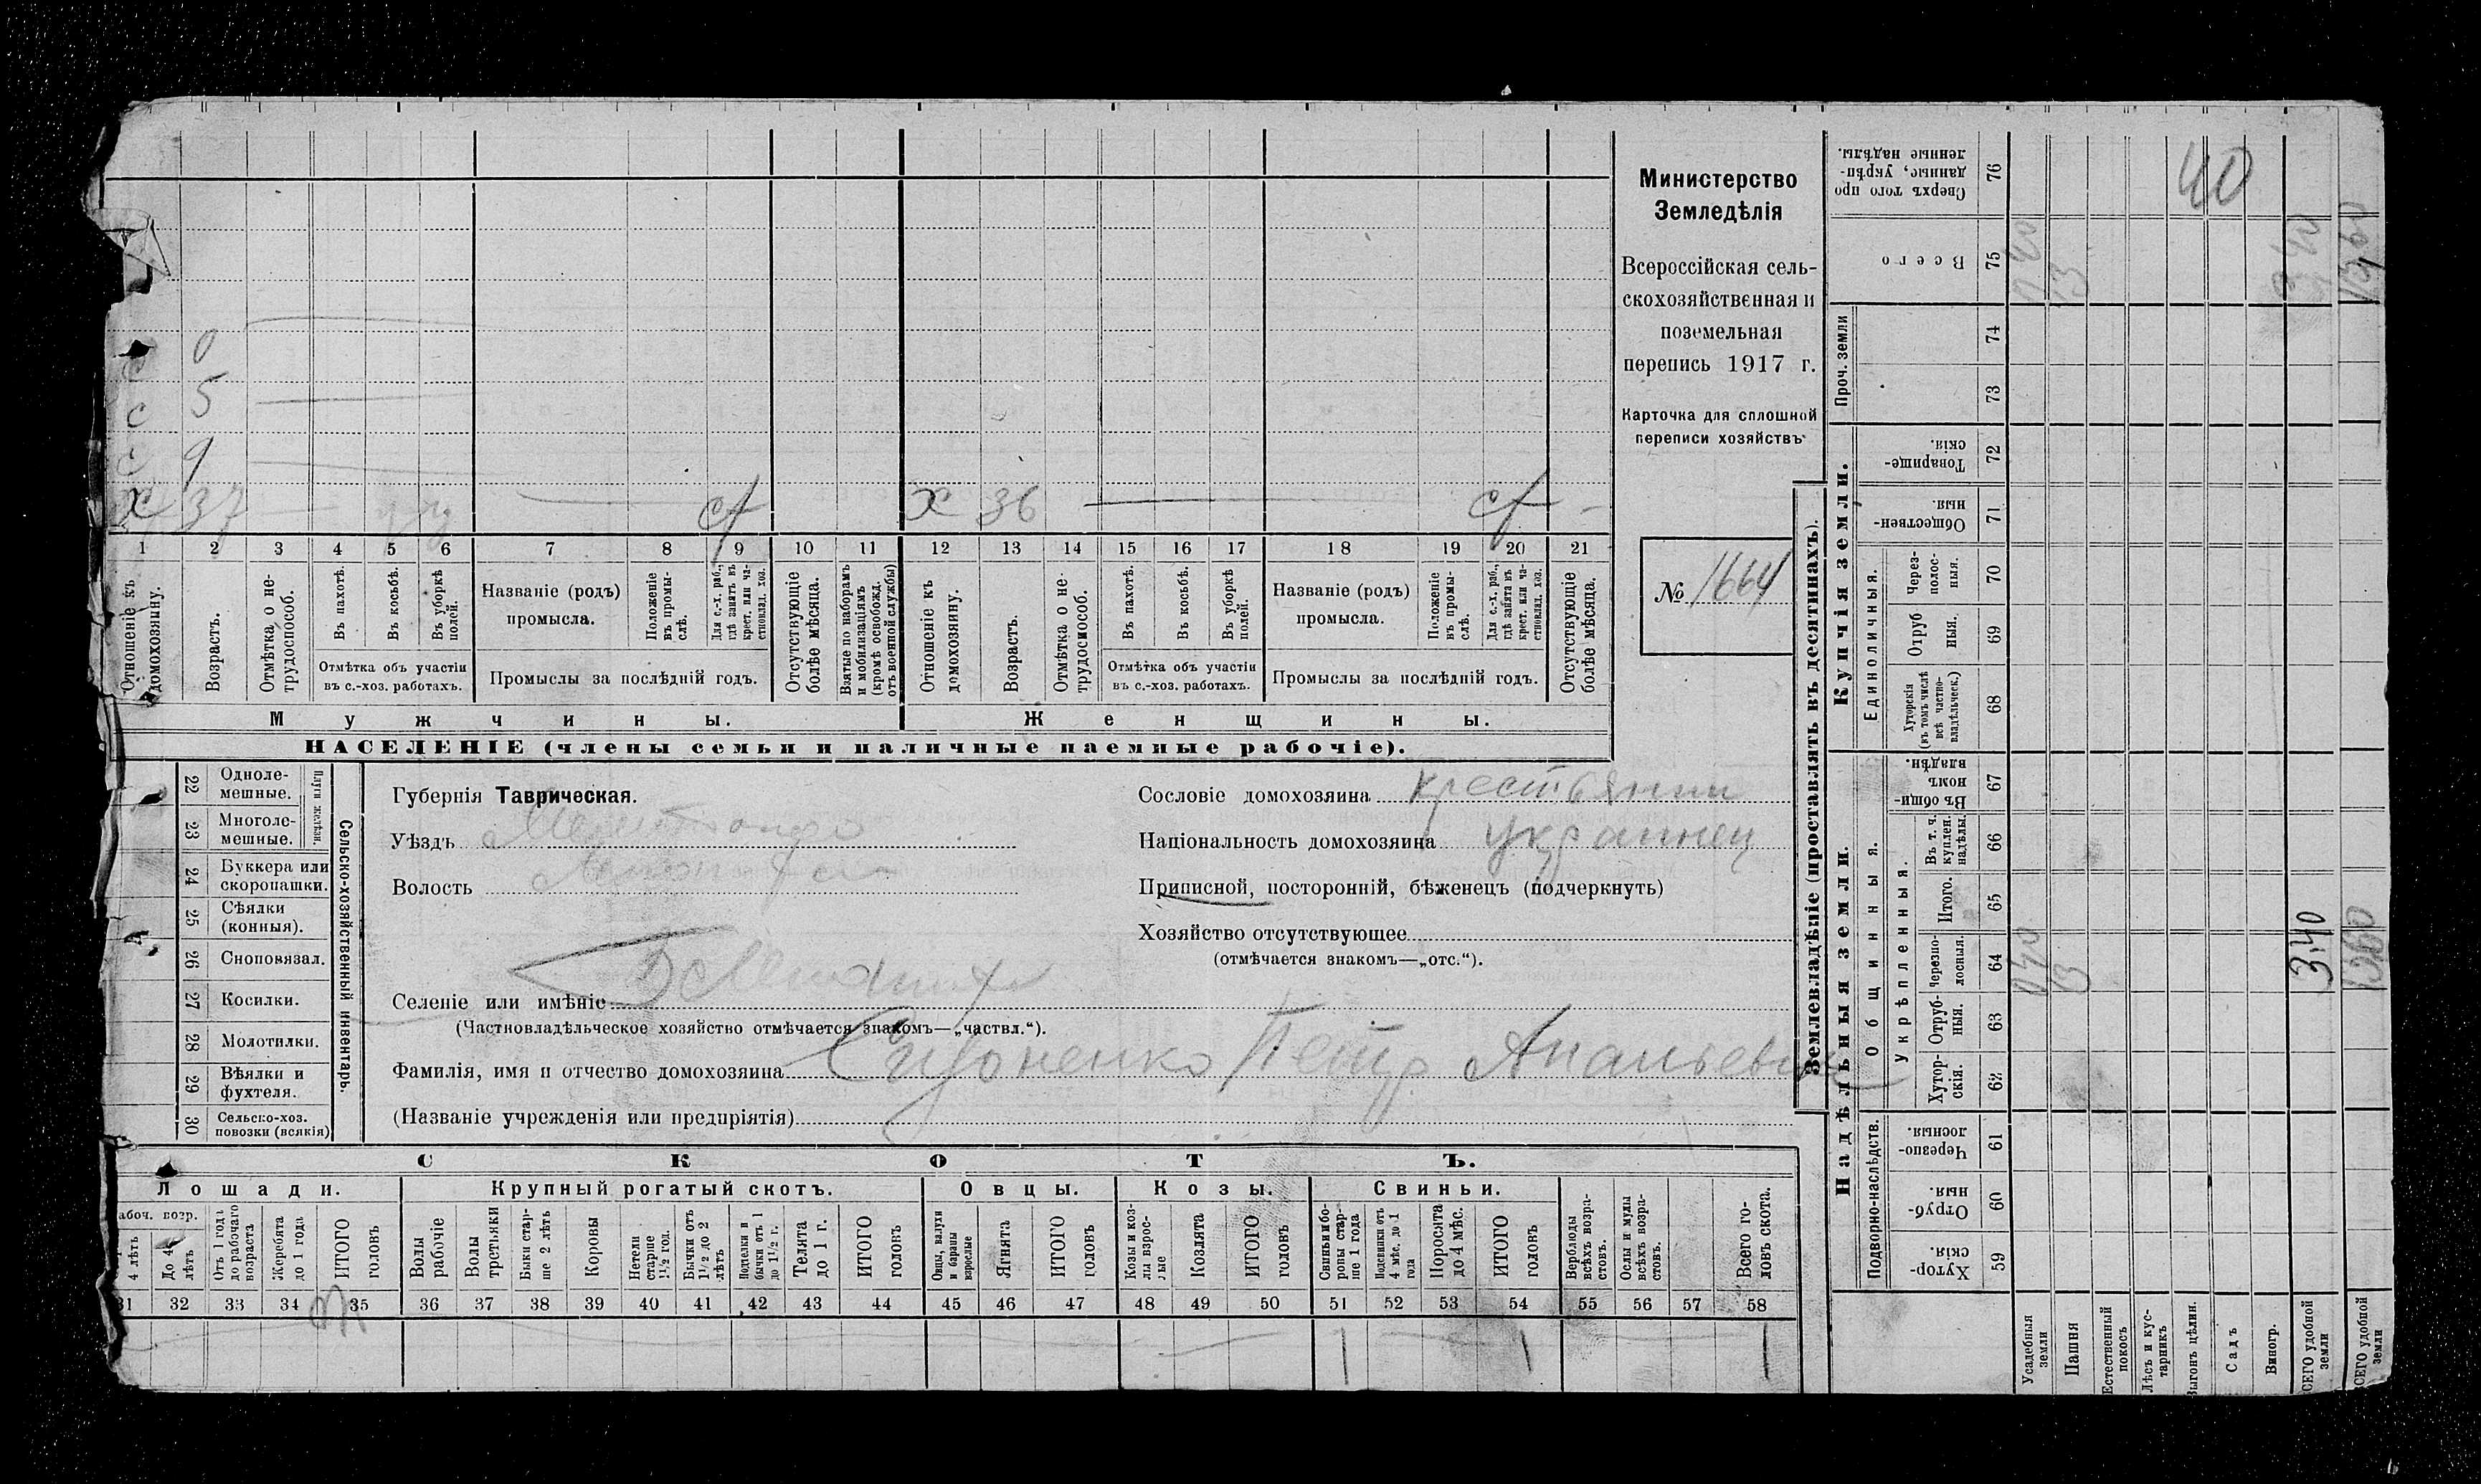 Министерство
Земледѣлія
Всероссійская сель-
скохозяйственная и
поземельная
перепись 1917 г.
Карточка для сплошной
переписи хозяйствъ
№ 1664
с 0
с 5
с 9
х 37 сf х 36 сf -
1 2 3 4 5 6 7 8 9 10 11 12 13 14 15 16 17 18 19 20 21
Отношеніе къ домохозяину.
Возрастъ.
Отмѣтка о не-трудоспособ.
Въ пахотѣ.
Въ косьбѣ.
Въ уборкѣ полей.
Отмѣтка объ участіи
въ с.-хоз. работахъ.
Названіе (родъ)
промысла.
Положеніе въ промы-слѣ.
Для с.-х. раб., гдѣ занятъ въ крест. или ча-стновлад. хоз.
Промыслы за послѣдній годъ.
Отсутствующіе болѣе мѣсяца.
Взятые по наборамъ и мобилизаціямъ (кромѣ освобожд. отъ военной службы)
Отношеніе къ домохозяину.
Возрастъ.
Отмѣтка о не-трудоспособ.
Въ пахотѣ.
Въ косьбѣ.
Въ уборкѣ полей.
Отмѣтка объ участіи
въ с.-хоз. работахъ.
Названіе (родъ)
промысла.
Положеніе въ промы-слѣ.
Для с.-х. раб., гдѣ занята въ крест. или ча-стновлад. хоз.
Промыслы за послѣдній годъ.
Отсутствующіе болѣе мѣсяца.
Мужчины. Женщины.
НАСЕЛЕНІЕ (члены семьи и наличные наемные рабочіе).
22 Одноле-мешные.
23 Многоле-мешные.
Плуги желѣзн.
24 Буккера или скоропашки.
25 Сѣялки (конныя).
26 Сноповязал.
27 Косилки.
28 Молотилки.
29 Вѣялки и фухтеля.
30 Сельско-хоз. повозки (всякія)
Сельско-хозяйственный инвентарь.
Губернія Таврическая.
Уѣздъ
Волость
Селеніе или имѣніе
(Частновладѣльческое хозяйство отмѣчается знакомъ—„частвл.“).
Фамилія, имя и отчество домохозяина Петр Ананьевич
(Названіе учрежденія или предпріятія)
Сословіе домохозяина крестьянин
Національность домохозяина украинец
Приписной, посторонній, бѣженецъ (подчеркнуть)
Хозяйство отсутствующее
(отмѣчается знакомъ—„отс.“).
СКОТЪ.
Лошади. Крупный рогатый скотъ. Овцы. Козы. Свиньи.
абоч. возр.
4 лѣтъ
До 4 лѣтъ
Отъ 1 года до рабочаго возраста
Жеребята до 1 года
ИТОГО головъ
Волы рабочіе
Волы тростьяки
Быки стар-ше 2 лѣтъ
Коровы
Нетели старше 1½ год.
Бычки отъ 1½ до 2 лѣтъ
Подтелки и бычки отъ 1 до 1½ г.
Телята до 1 г.
ИТОГО головъ
Овцы, валухи и бараны взрослые
Ягнята
ИТОГО головъ
Козы и коз-лы взрос-лые
Козлята
ИТОГО головъ
Свиньи и бо-ровы стар-ше 1 года
Подсвинки отъ 4 мѣс. до 1 года
Поросята до 4 мѣс.
ИТОГО головъ
Верблюды всѣхъ возра-стовъ.
Ослы и мулы всѣхъ возра-стовъ.
Всего го-ловъ скота.
31 32 33 34 35 36 37 38 39 40 41 42 43 44 45 46 47 48 49 50 51 52 53 54 55 56 57 58
1 1 1
Землевладѣніе (проставлять въ десятинахъ).
Надѣльныя земли. Купчія земли. Проч. земли
Подворно-наслѣдств.
Общинныя.
Укрѣпленныя.
Единоличныя.
Хутор-скія. 59
Отруб-ныя. 60
Черезпо-лосныя. 61
Хутор-скія. 62
Отруб-ныя. 63
Черезпо-лосныя. 64
Итого. 65
Въ т. ч. куплен. надѣлы. 66
Въ общи-номъ владѣн. 67
Хуторскія (въ томъ числѣ всѣ частно-владѣльческ.) 68
Отруб ныя. 69
Через-полос-ныя. 70
Обществен-ныя. 71
Товарище-скія. 72
73
74
Всего 75
Сверхъ того про данные, укрѣп-ленные надѣлы. 76
Усадебныя земли
Пашня
Естественный покосъ
Лѣсъ и кус-тарникъ
Выгонъ цѣлин.
Садъ
Виногр.
СЕГО удобной земли
СЕГО удобной земли
340
40